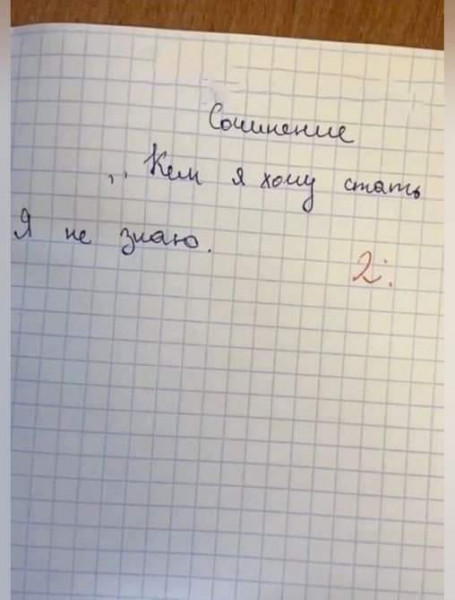 Сочинение
,, Кем я хочу стать
Я не знаю.
2: